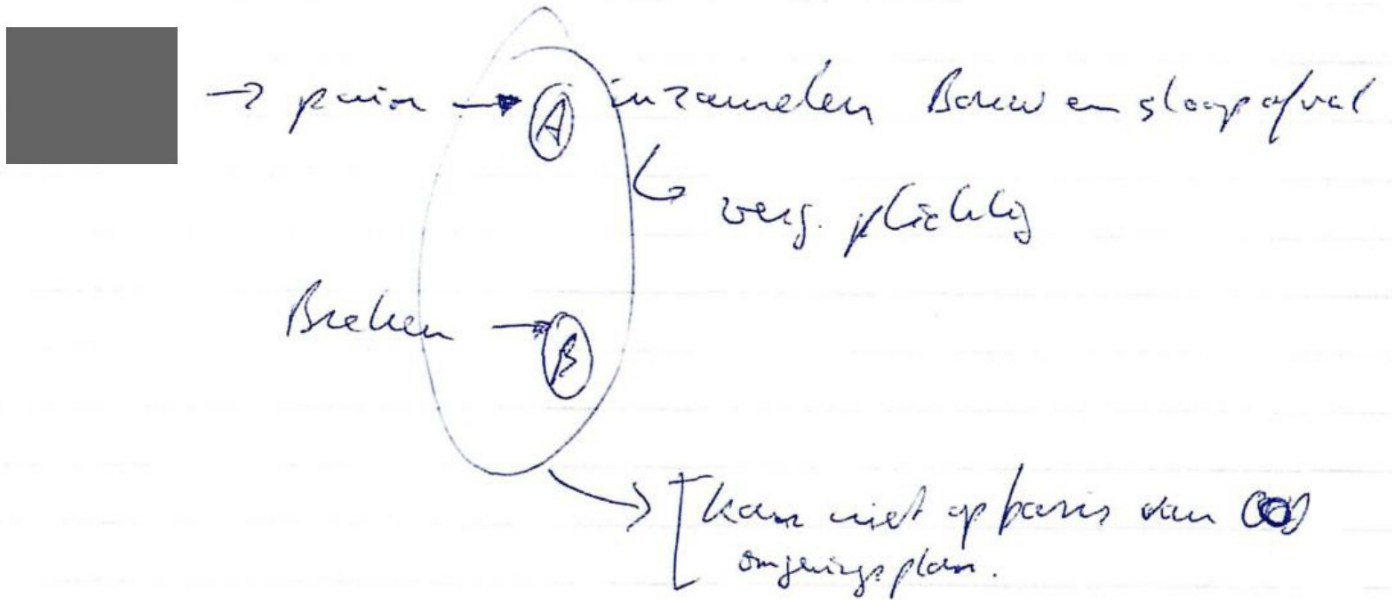 → puin → A inzamelen Bouw en sloopafval
↳ verg. plichtig
Breken → B
→ kan niet op basis van
omgevingsplan.